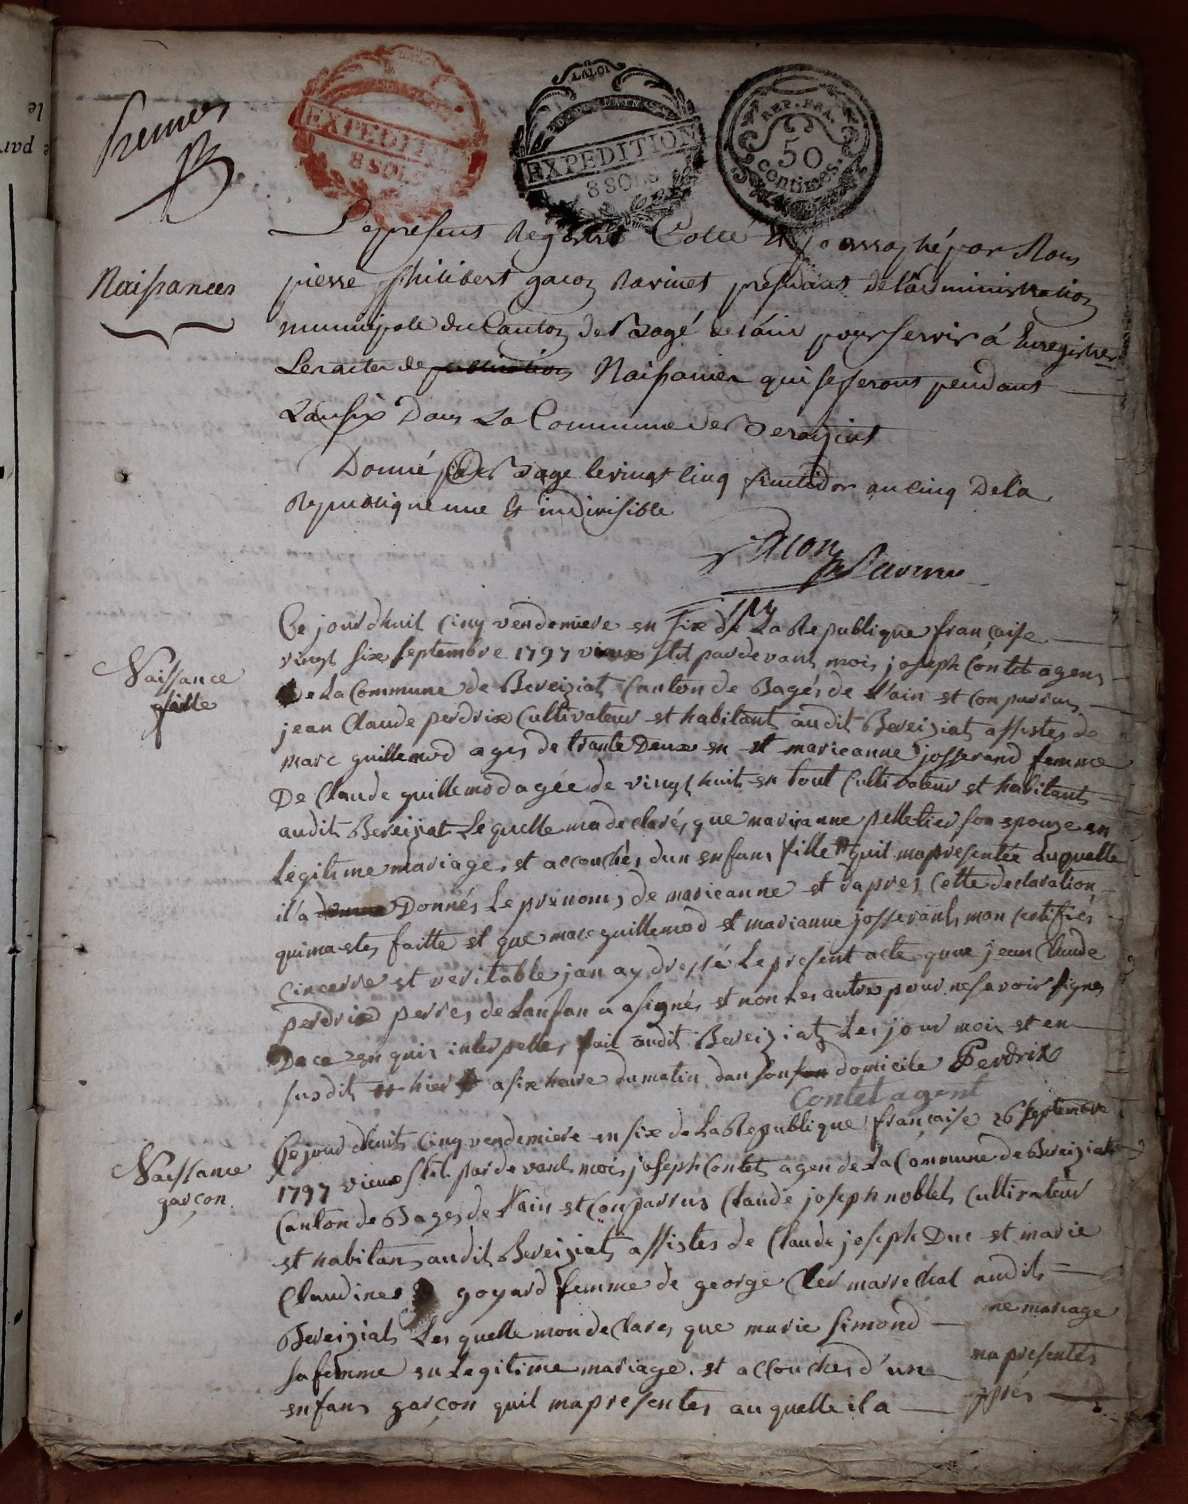 premier
LA LOI
EXPEDITION
8 SOLS
LA LOI
EXPEDITION
8 SOLS
REP. FRA.
50
centimes.
Le present Registre Cotté et parraphé par Nous
Naissances
pierre philibert gacon Ravinet president de l'administration
municipale du Canton de Bagé de l'ain pour servir à Enregistrer
Les actes de publication Naissances qui se feront pendant
L'an six Dans La Commune de Bereiziat
Donné a Bagé le vingt cinq fructidor an cinq De la
Republique une et indivisible
Gacon
Ce jourd'huit cinq vendemiere en six de La Republique française
vingt six septembre 1797 vieux stil par devant mois joseph Contet agens
Naissance
fille
de La Commune de Bereiziat Canton de Bagés de l'ain est comparrus
jean Claude perdrix Cultivateur et habitant audit Bereiziat assistes de
marc guillemod ages de trante Deux en et marieanne josserand femme
De Claude guillemod agée de vingt huit en tout Cultivateur et habitant
audit Bereiziat Lequelle ma declarés que marianne pelletier son epouze en
legitime mariage est accouchés d'un enfans fille quil ma presentée auquelle
il a donné Donnés Le prenoms de marieanne et d'apres Cette declaration
qui ma etes faitte et que marc guillemod et marianne josserands mon certifiés
cincerre et veritable jan ay dressé Le present acte que jean Claude
perdrix perres de Lanfan a asignés et non Les autre pour ne savoir signes
De ce en quis interpelles fait audit Bereiziat Les jour mois et en
susdit et hier a six heure du matin dan son domicile Perdrix
Contet agent
Ce jourd'huit Cinq vendemiere en six de La Republique française 26 septembre
Naissance
garçon.
1797 vieux stil par devant mois joseph Contet agen de La Commune de Bereiziat
Canton de Bages de l'ain est Comparrus Claude joseph noblet Cultivateur
et habitans audit Bereiziat assistes de Claude joseph Duc et marie
Claudine goyard femme de george Cler marrechal audit
Bereiziat Lesquelle mon declares que marie simond
ne mariage
sa femme en Legitime mariage est accouches d'un
ma presentés
enfans garçon quil ma presentes auquelle il a